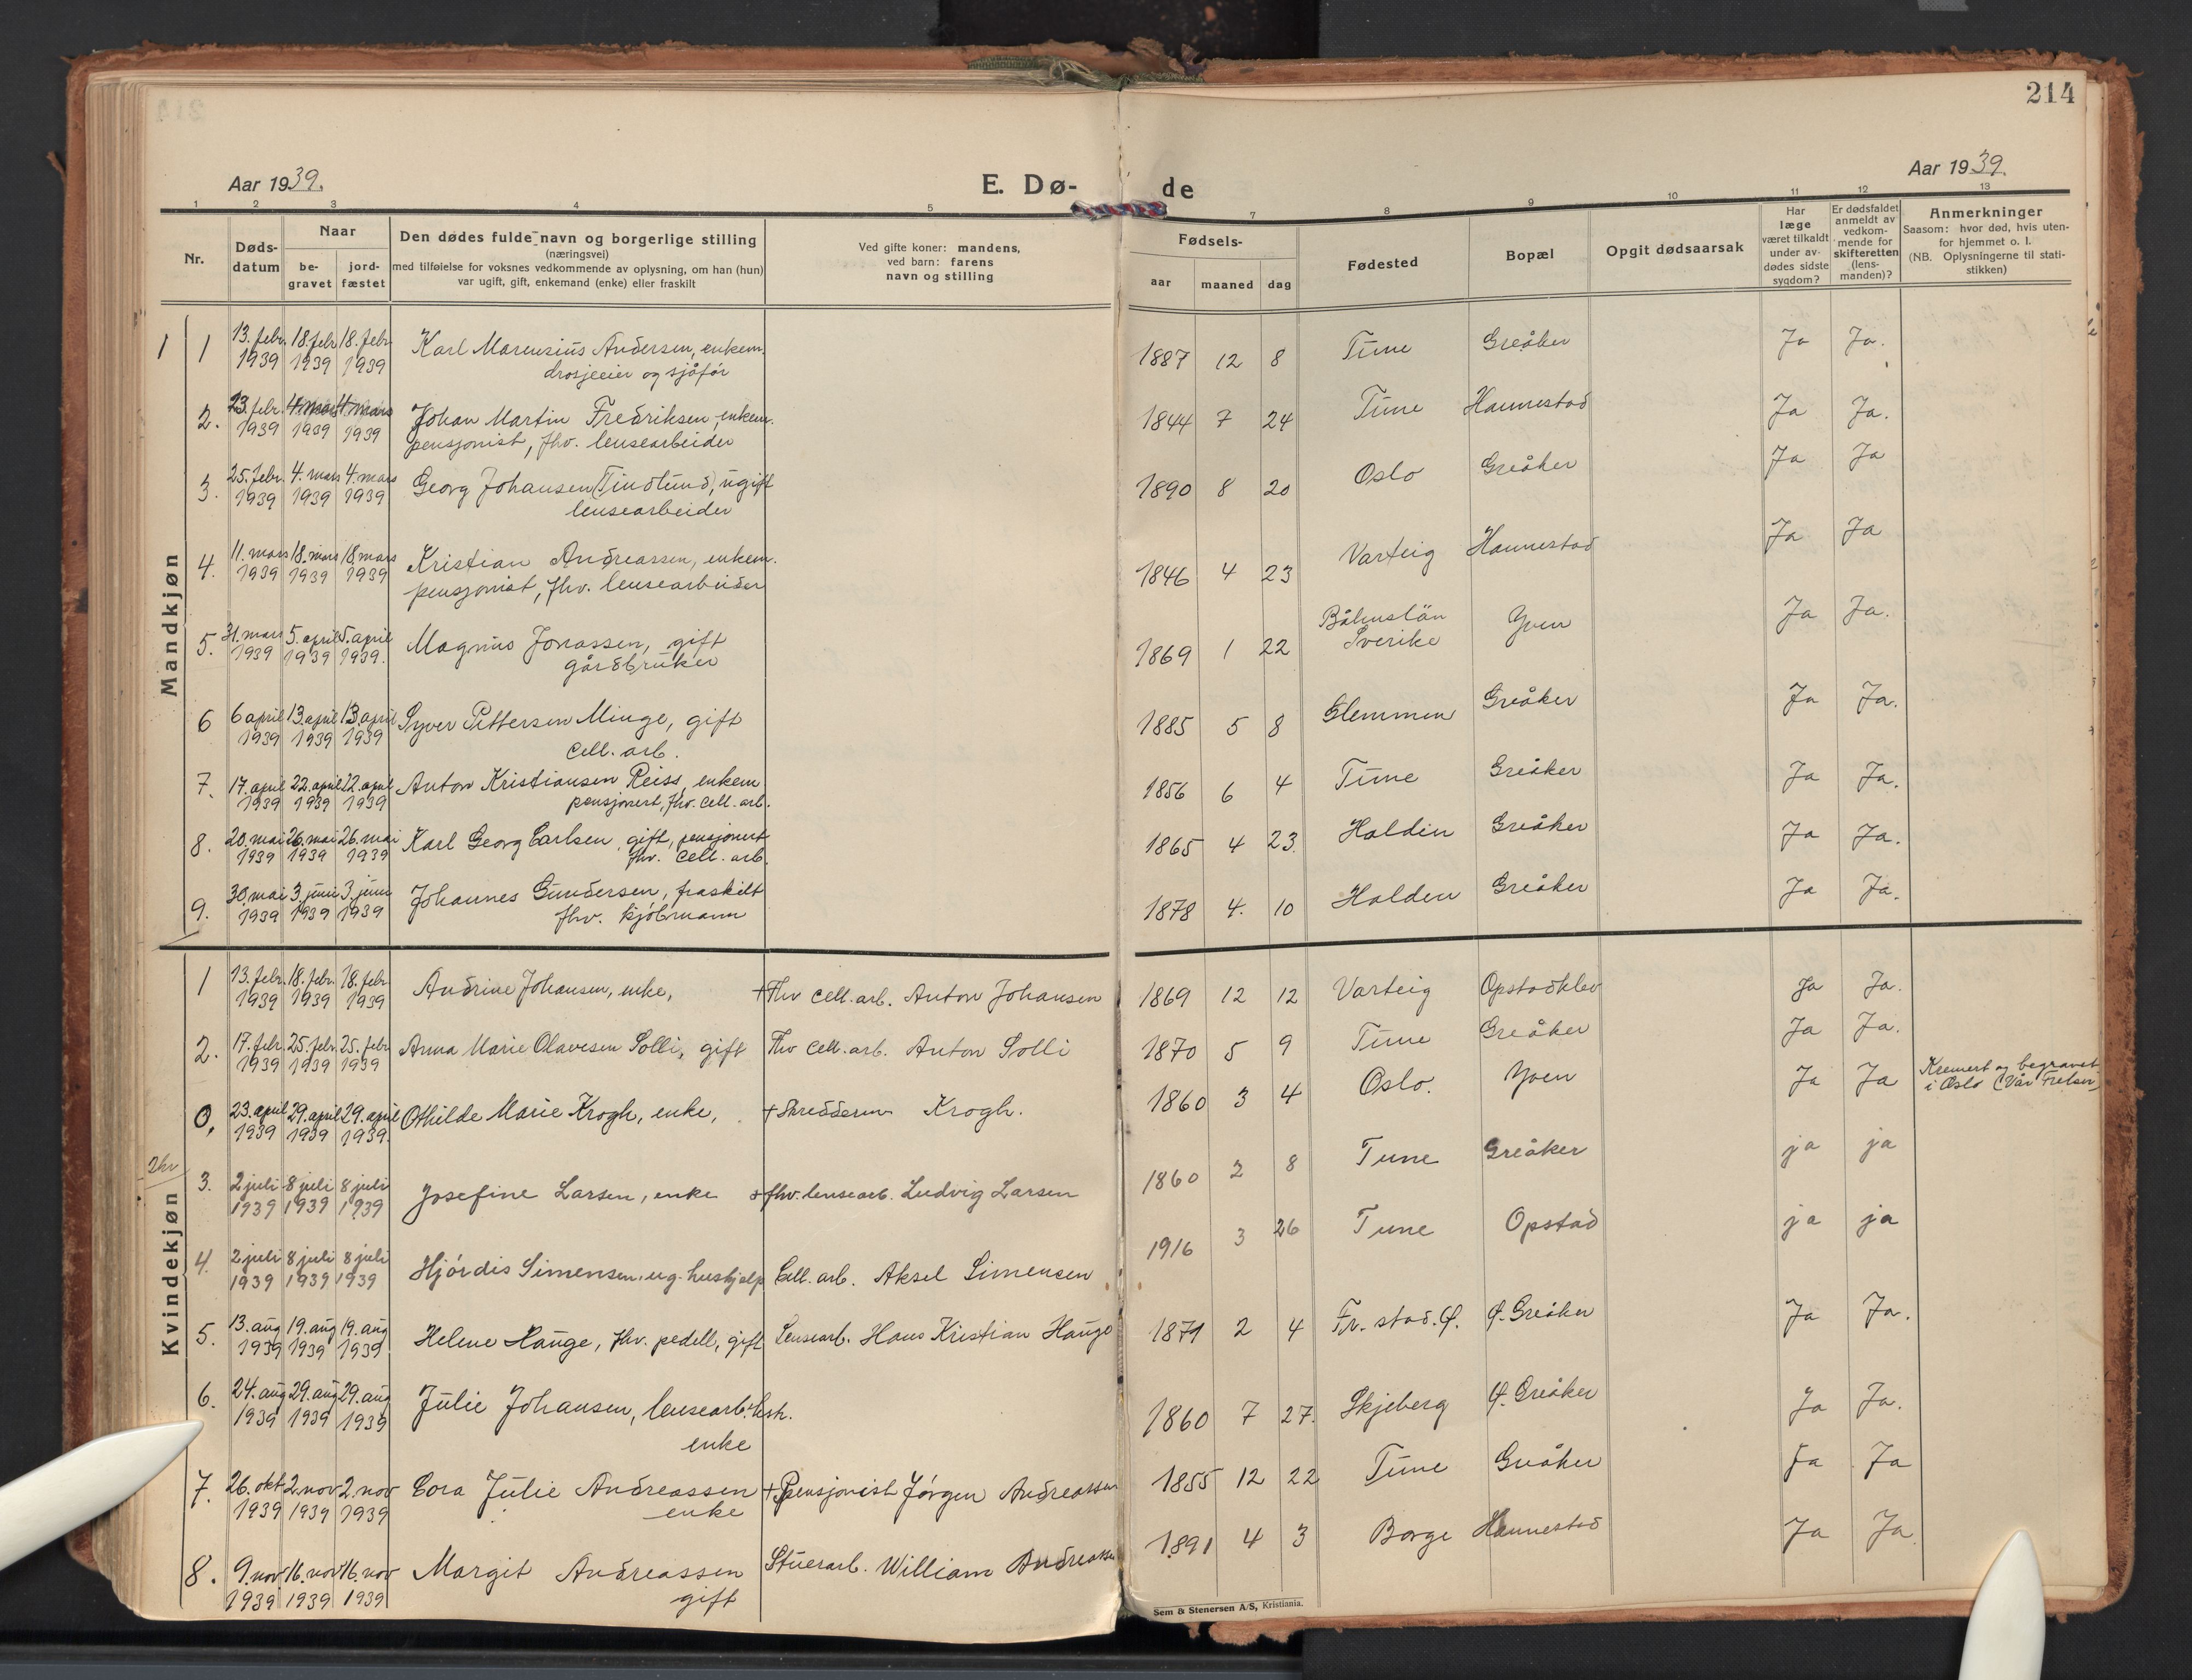 214
Aar 1939.
E. Dø-
de
Aar 1939.
1 2 3 4 5 7 8 9 10 11 12 13
Nr.
Døds-
datum
Naar
be-
gravet
jord-
fæstet
Den dødes fulde navn og borgerlige stilling
(næringsvei)
med tilføielse for voksnes vedkommende av oplysning, om han (hun)
var ugift, gift, enkemand (enke) eller fraskilt
Ved gifte koner: mandens,
ved barn: farens
navn og stilling
Fødsels-
aar maaned dag
Fødested
Bopæl
Opgit dødsaarsak
Har
læge
været tilkaldt
under av-
dødes sidste
sygdom?
Er dødsfaldet
anmeldt av
vedkom-
mende for
skifteretten
(lens-
manden)?
Anmerkninger
Saasom: hvor død, hvis uten-
for hjemmet o. l.
(NB. Oplysningerne til stati-
stikken)
Mandkjøn
1 1 13. febr. 18. febr. 18. febr. Karl Marensius Andersen, enkem. 1887 12 8 Tune Greåker Ja Ja.
1939 1939 1939 drosjeeier og sjåfør
2. 23. febr. 4. mars 4. mars Johan Martin Fredriksen, enkem. 1844 7 24 Tune Hannestad Ja Ja.
1939 1939 1939 pensjonist, fhv. lensearbeider
3. 25. febr. 4. mars 4. mars Georg Johansen (Tindlund), ugift 1890 8 20 Oslo Greåker Ja Ja
1939 1939 1939 lensearbeider
4. 11. mars 18. mars 18. mars Kristian Andreassen, enkem. 1846 4 23 Varteig Hannestad Ja Ja
1939 1939 1939 pensjonist, fhv. lensearbeider
5. 31. mars 5. april 5. april Magnus Jonassen, gift 1869 1 22 Båhuslän Yven Ja Ja.
1939 1939 1939. gårdbruker Sverike
6 6 april 13. april 13. april Syver Pettersen Minge, gift 1885 5 8 Glemmen Greåker Ja Ja.
1939 1939 1939 cell. arb.
7. 17. april 22. april 22. april Anton Kristiansen Reiss, enkem 1856 6 4 Tune Greåker Ja Ja.
1939 1939 1939 pensjonert, fhv. cell. arb.
8. 20. mai 26. mai 26. mai Karl Georg Carlsen, gift, pensjonert 1865 4 23. Halden Greåker Ja Ja.
1939 1939 1939 fhv. cell. arb.
9. 30 mai 3 juni 3 juni Johannes Gundersen, fraskilt 1878 4. 10 Halden Greåker Ja Ja.
1939 1939 1939 fhv. kjøbmann
Kvindekjøn
1 13. febr. 18. febr. 18. febr. Andrine Johansen, enke, + Fhv cell. arb. Anton Johansen 1869 12 12 Varteig Opstadklev Ja Ja.
1939 1939 1939
2. 17. febr. 25. febr. 25. febr. Anna Marie Olavesen Solli, gift Fhv cell. arb. Anton Solli 1870 5 9 Tune Greåker Ja Ja.
1939 1939 1939
0, 23. april 29. april 29. april Othilde Marie Krogh, enke, + Skredderm Krogh. 1860 3 4 Oslo. Yven Ja Ja Kremert og begravet
1939 1939 1939. i Oslo (Vår Frelser
3. 2 juli 8 juli 8 juli Josefine Larsen, enke + fhv. lensearb. Ludvig Larsen 1860 2 8 Tune Greåker ja ja
1939 1939 1939
4. 2 juli 8 juli 8 juli Hjördis Simensen, ug. hushjelp Cell. arb. Aksel Simensen 1916 3 26 Tune Opstad ja ja
1939 1939 1939
5. 13. aug 19. aug 19. aug Helene Hauge, fhv. pedell, gift Lensearb. Hans Kristian Hauge 1871 2 4 Fr. stad. Ø. Greåker Ja Ja.
1939 1939 1939
6. 24. aug 29. aug 29. aug Julie Johansen, lensearb. 1860 7 27. Skjeberg Ø. Greåker Ja Ja.
1939 1939 1939 enke
7. 26. okt 2. nov 2. nov Cora Julie Andreassen + Pensjonist Jørgen Andreassen 1855 12 22 Tune Greåker Ja Ja
1939 1939 1939 enke
8. 9. nov 16. nov 16. nov Margit Andreassen Stuerarb. William Andreassen 1891 4 3 Borge Hannestad Ja Ja
1939 1939 1939 gift
Sem & Stenersen A/S, Kristiania.